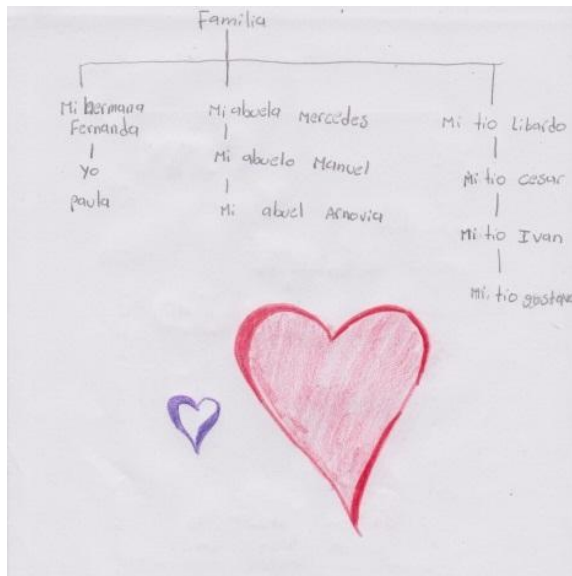 Familia
Mi hermana
Fernanda
yo
paula
Mi abuela Mercedes
Mi abuelo Manuel
Mi abuel Arnovia
Mi tio Libardo
Mi tio cesar
Mi tio Ivan
Mi tio